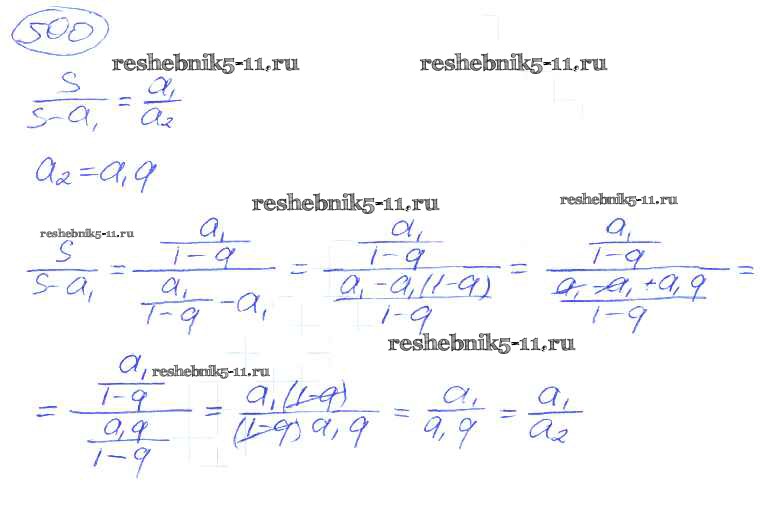 500
reshebnik5-11.ru reshebnik5-11.ru
S/(S-a₁) = a₁/a₂
a₂ = a₁q
reshebnik5-11.ru reshebnik5-11.ru
reshebnik5-11.ru
S/(S-a₁) = (a₁/(1-q))/(a₁/(1-q) - a₁) = (a₁/(1-q))/((a₁-a₁(1-q))/(1-q)) = (a₁/(1-q))/((a₁-a₁+a₁q)/(1-q)) =
reshebnik5-11.ru
reshebnik5-11.ru
= (a₁/(1-q))/((a₁q)/(1-q)) = (a₁(1-q))/((1-q)a₁q) = a₁/(a₁q) = a₁/a₂